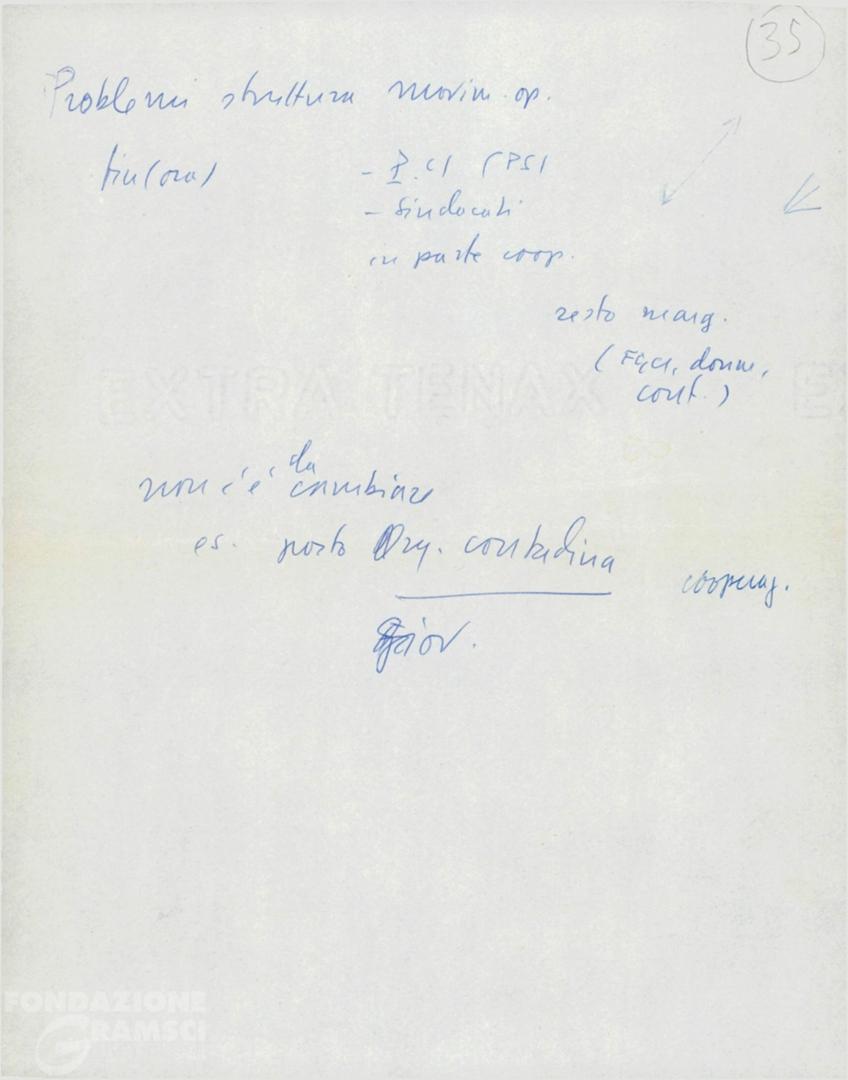 35
Problemi struttura movim. op.
fin(ora)
- P.CI (PSI
- Sindacati
in parte coop.
resto marg.
(FGCI, donne,
cont.)
non c'è da cambiare
es. posto Org. contadina
cooperaz.
giov.
EXTRA TENAX
FONDAZIONE
GRAMSCI